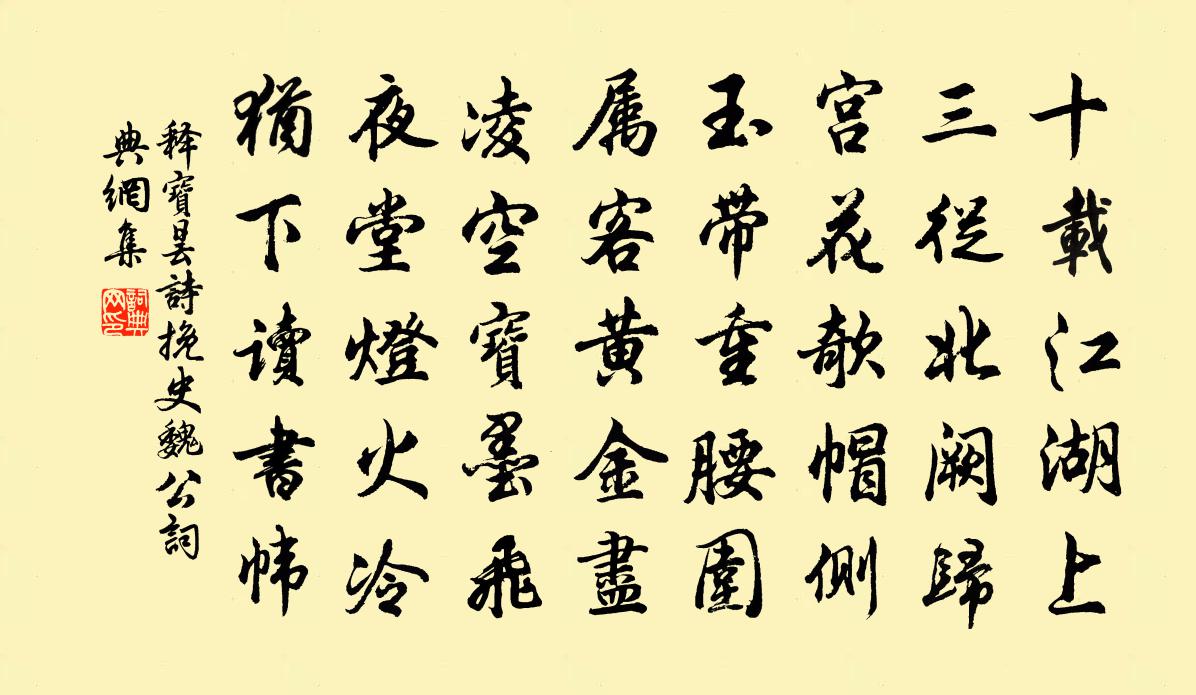 十載江湖上
三從北闕歸
宮花欹帽側
玉带重腰圍
属客黄金盡
凌空寶墨飛
夜堂燈火冷
猶下讀書帏
释寶昙詩挽史魏公詞
典網集
詞典網印